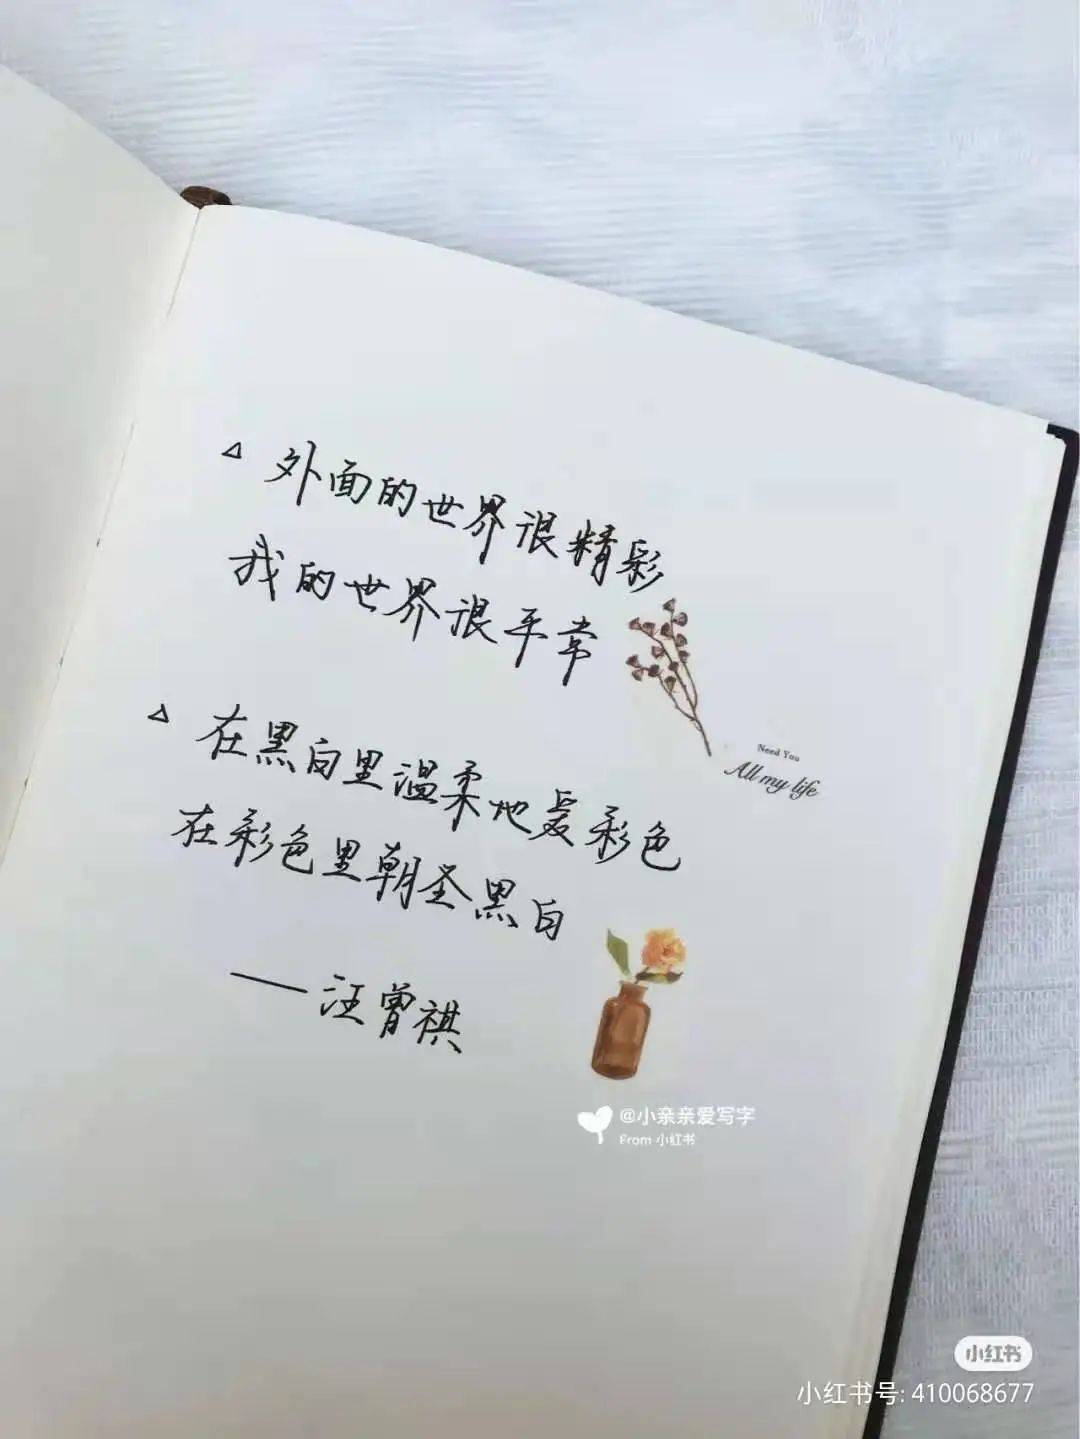 △ 外面的世界很精彩
我的世界很平常
△ 在黑白里温柔地爱彩色
在彩色里朝圣黑白
——汪曾祺
Need You
All my life
@小亲亲爱写字
From 小红书
小红书
小红书号: 410068677